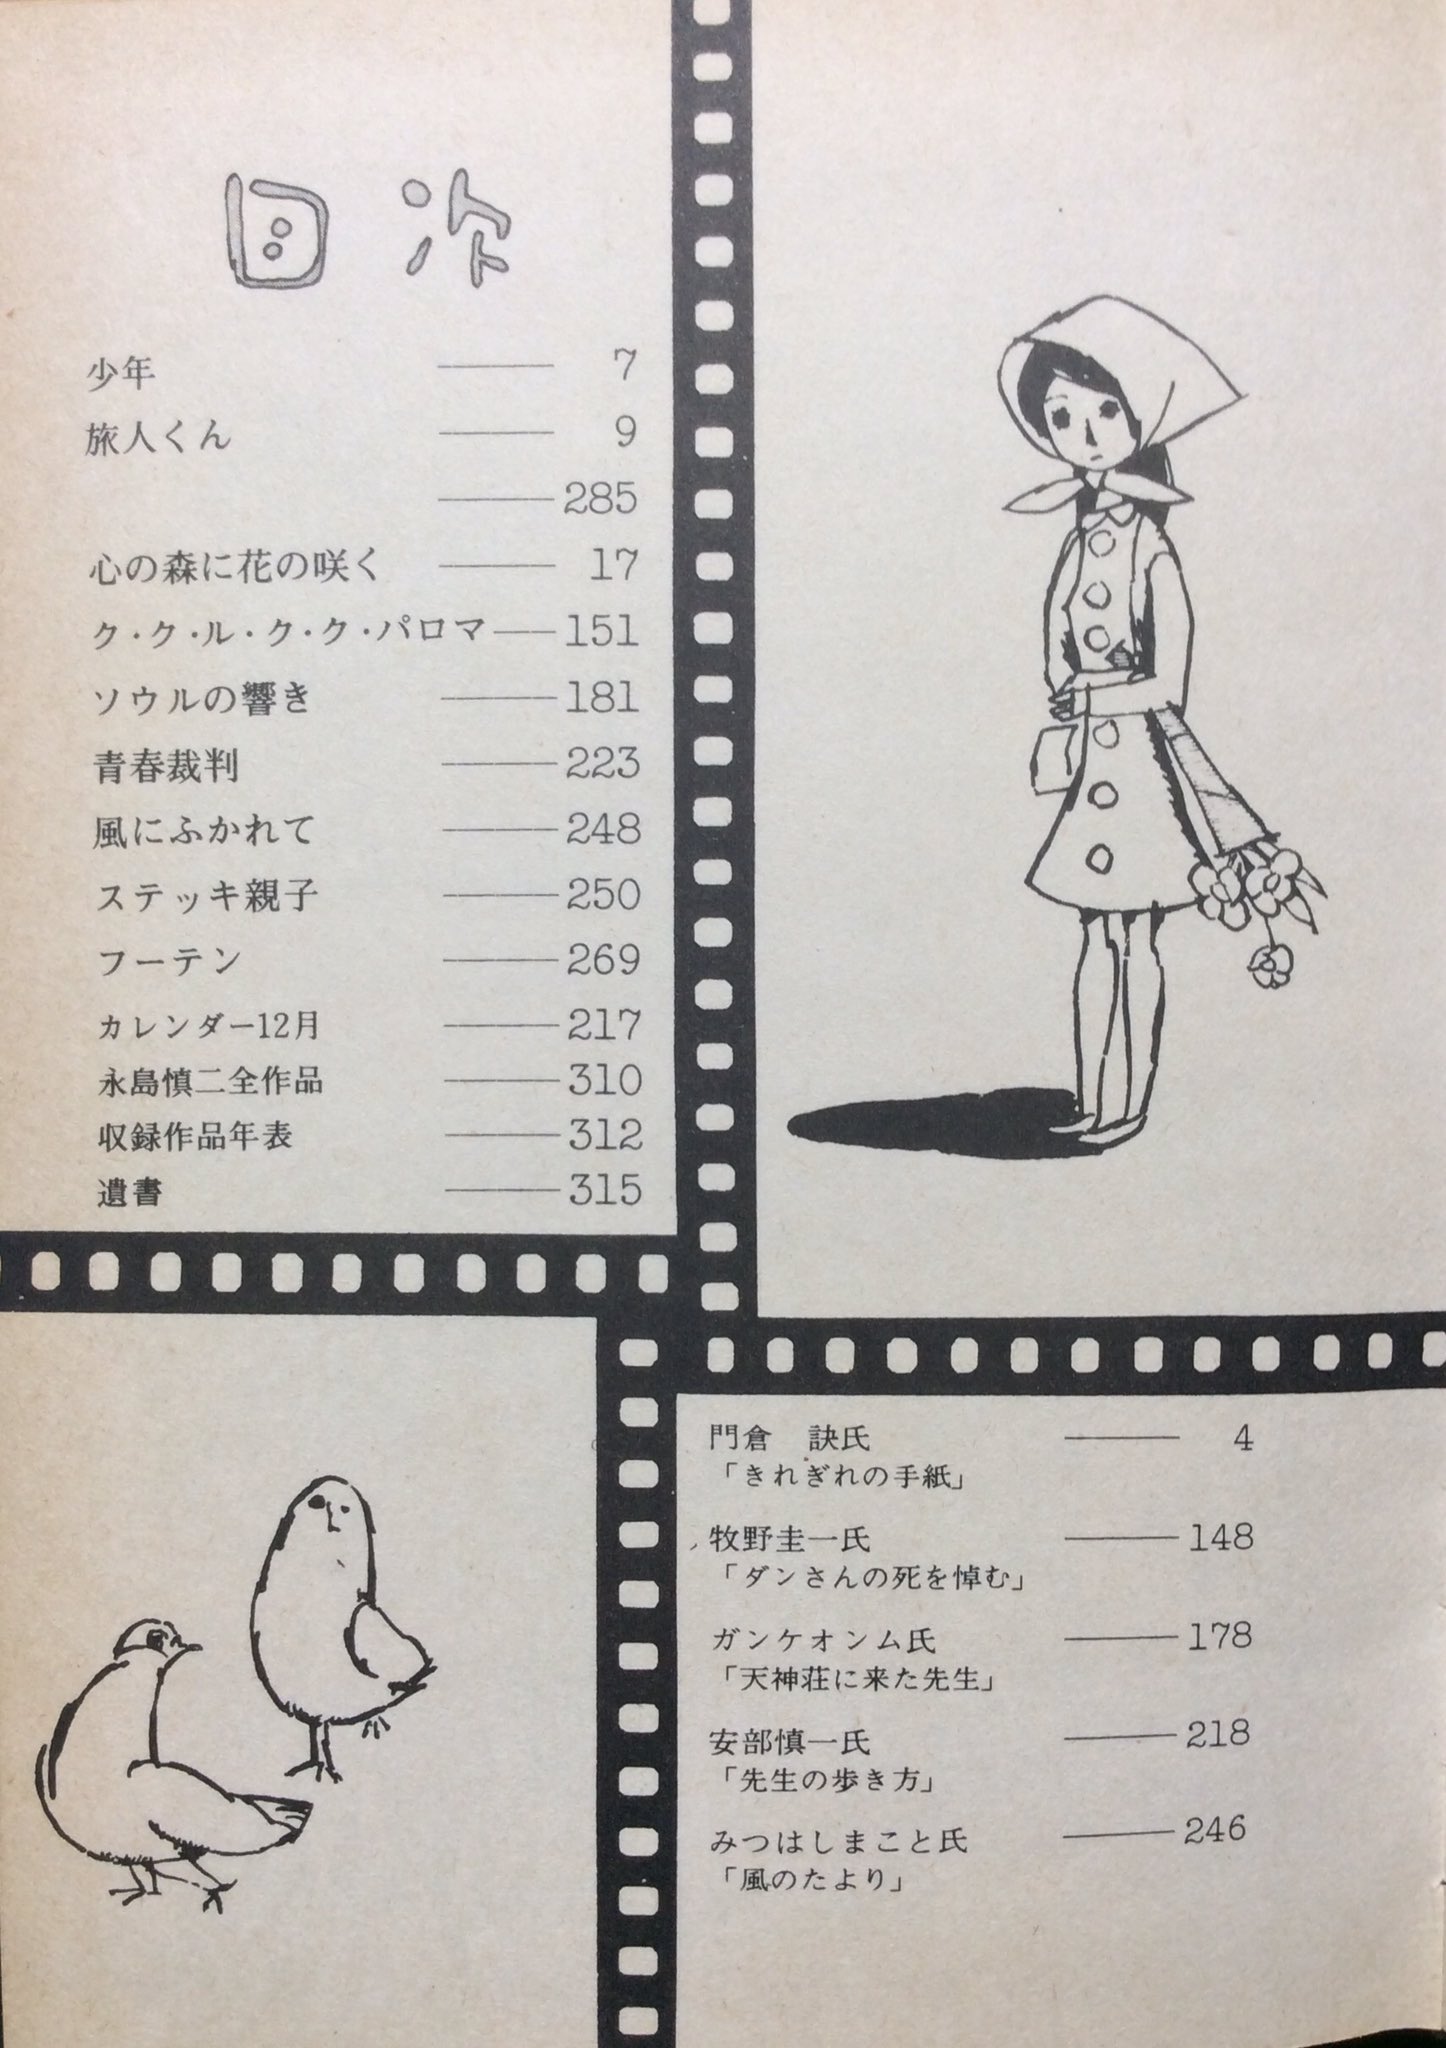 目次
少年 ——— 7
旅人くん ——— 9
——— 285
心の森に花の咲く ——— 17
ク・ク・ル・ク・ク・パロマ —— 151
ソウルの響き ——— 181
青春裁判 ——— 223
風にふかれて ——— 248
ステッキ親子 ——— 250
フーテン ——— 269
カレンダー12月 ——— 217
永島慎二全作品 ——— 310
収録作品年表 ——— 312
遺書 ——— 315
門倉　訣氏 ——— 4
「きれぎれの手紙」
牧野圭一氏 ——— 148
「ダンさんの死を悼む」
ガンケオンム氏 ——— 178
「天神荘に来た先生」
安部慎一氏 ——— 218
「先生の歩き方」
みつはしまこと氏 ——— 246
「風のたより」